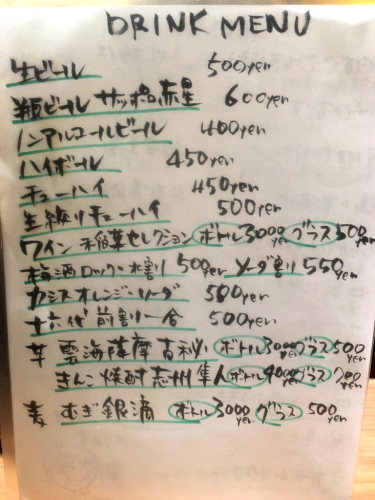 DRINK MENU
生ビール 500yen
瓶ビール サッポロ赤星 600yen
ノンアルコールビール 400yen
ハイボール 450yen
チューハイ 450yen
生絞りチューハイ 500yen
ワイン 稲葉セレクション ボトル3000yen グラス500yen
梅酒ロック・水割り 500yen ソーダ割り 550yen
カシスオレンジ・ソーダ 500yen
十六代 前割り一合 500yen
芋 雲海薩摩古秘 ボトル3000yen グラス500yen
きんこ 焼酎志州隼人 ボトル4000yen グラス700yen
麦 むぎ銀滴 ボトル3000yen グラス500yen